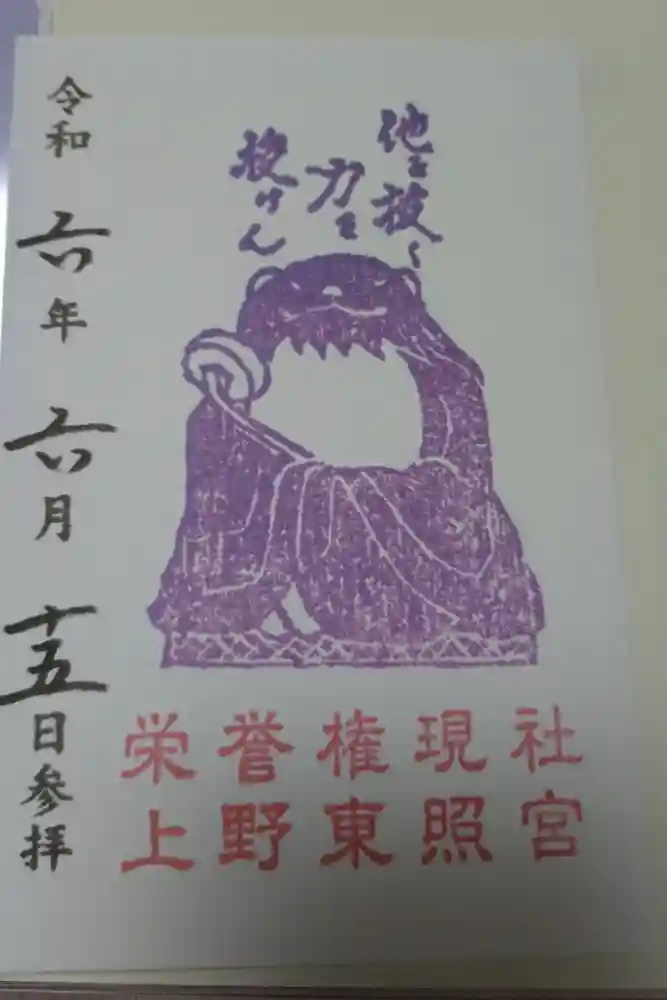 他を抜く
力を
授けん
令和六年六月十五日参拝
栄誉権現社
上野東照宮